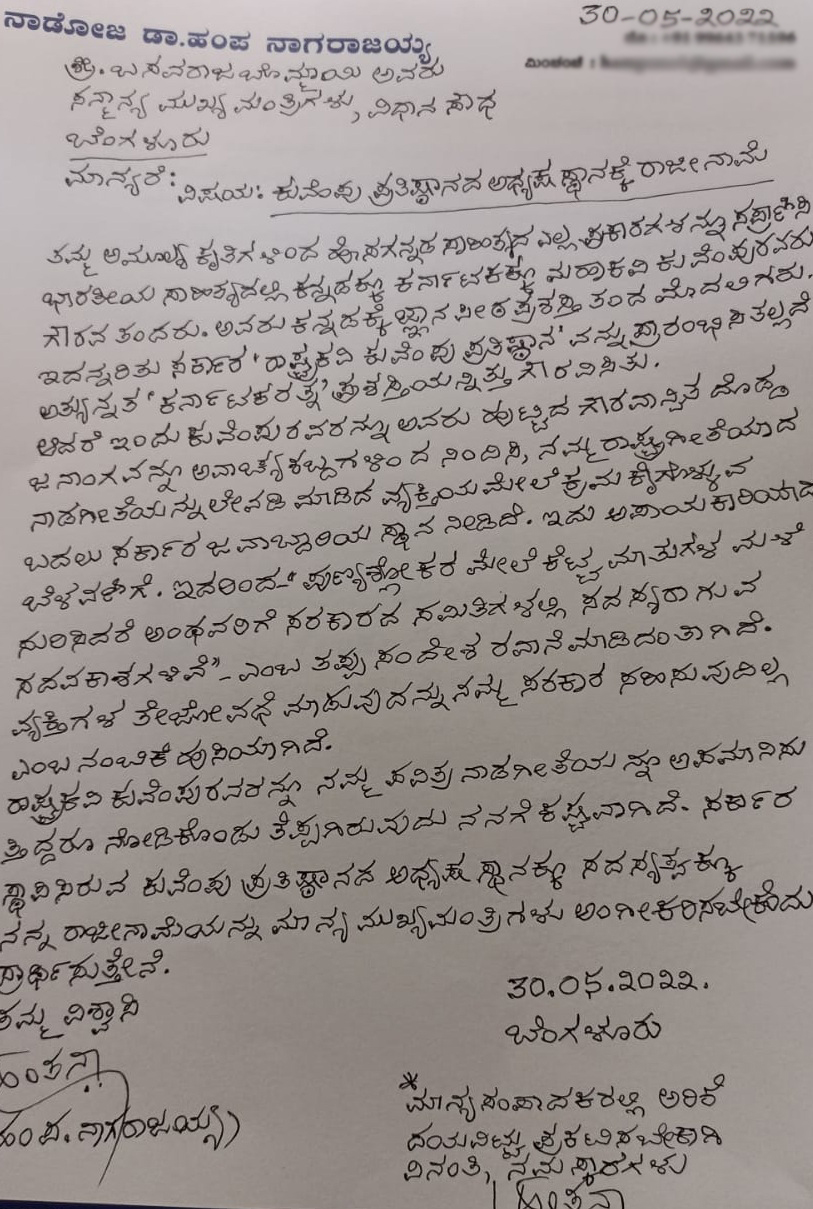 ನಾಡೋಜ ಡಾ.ಹಂಪ ನಾಗರಾಜಯ್ಯ
30-05-2022
ಮಿಂಚಂಚೆ :
ಶ್ರೀ. ಬಸವರಾಜ ಬೊಮ್ಮಾಯಿ ಅವರು
ಸನ್ಮಾನ್ಯ ಮುಖ್ಯ ಮಂತ್ರಿಗಳು, ವಿಧಾನ ಸೌಧ
ಬೆಂಗಳೂರು
ಮಾನ್ಯರೆ: ವಿಷಯ: ಕುವೆಂಪು ಪ್ರತಿಷ್ಠಾನದ ಅಧ್ಯಕ್ಷ ಸ್ಥಾನಕ್ಕೆ ರಾಜೀನಾಮೆ
ತಮ್ಮ ಅಮೂಲ್ಯ ಕೃತಿಗಳಿಂದ ಹೊಸಗನ್ನಡ ಸಾಹಿತ್ಯದ ಎಲ್ಲ ಪ್ರಕಾರಗಳನ್ನೂ ಸಪ್ರಾಣಿಸಿ
ಭಾರತೀಯ ಸಾಹಿತ್ಯದಲ್ಲಿ ಕನ್ನಡಕ್ಕೂ ಕರ್ನಾಟಕಕ್ಕೂ ಮಹಾಕವಿ ಕುವೆಂಪುರವರು
ಗೌರವ ತಂದರು. ಅವರು ಕನ್ನಡಕ್ಕೆ ಜ್ಞಾನಪೀಠ ಪ್ರಶಸ್ತಿ ತಂದ ಮೊದಲಿಗರು.
ಇದನ್ನರಿತು ಸರ್ಕಾರ 'ರಾಷ್ಟ್ರಕವಿ ಕುವೆಂಪು ಪ್ರತಿಷ್ಠಾನ' ವನ್ನು ಪ್ರಾರಂಭಿಸಿತಲ್ಲದೆ
ಅತ್ಯುನ್ನತ 'ಕರ್ನಾಟಕರತ್ನ' ಪ್ರಶಸ್ತಿಯನ್ನಿತ್ತು ಗೌರವಿಸಿತು.
ಆದರೆ ಇಂದು ಕುವೆಂಪುರವರನ್ನೂ ಅವರು ಹುಟ್ಟಿದ ಗೌರವಾನ್ವಿತ ದೊಡ್ಡ
ಜನಾಂಗವನ್ನೂ ಅವಾಚ್ಯ ಶಬ್ದಗಳಿಂದ ನಿಂದಿಸಿ, ನಮ್ಮ ರಾಷ್ಟ್ರಗೀತೆಯಾದ
ನಾಡಗೀತೆಯನ್ನು ಲೇವಡಿ ಮಾಡಿದ ವ್ಯಕ್ತಿಯ ಮೇಲೆ ಕ್ರಮ ಕೈಗೊಳ್ಳುವ
ಬದಲು ಸರ್ಕಾರ ಜವಾಬ್ದಾರಿಯ ಸ್ಥಾನ ನೀಡಿದೆ. ಇದು ಅಪಾಯಕಾರಿಯಾದ
ಬೆಳವಳಿಗೆ. ಇದರಿಂದ- "ಪುಣ್ಯಶ್ಲೋಕರ ಮೇಲೆ ಕೆಟ್ಟ ಮಾತುಗಳ ಮಳೆ
ಸುರಿಸಿದರೆ ಅಂಥವರಿಗೆ ಸರಕಾರದ ಸಮಿತಿಗಳಲ್ಲಿ ಸದಸ್ಯರಾಗುವ
ಸದವಕಾಶಗಳಿವೆ"- ಎಂಬ ತಪ್ಪು ಸಂದೇಶ ರವಾನೆ ಮಾಡಿದಂತಾಗಿದೆ.
ವ್ಯಕ್ತಿಗಳ ತೇಜೋವಧೆ ಮಾಡುವುದನ್ನು ನಮ್ಮ ಸರಕಾರ ಸಹಿಸುವುದಿಲ್ಲ
ಎಂಬ ನಂಬಿಕೆ ಹುಸಿಯಾಗಿದೆ.
ರಾಷ್ಟ್ರಕವಿ ಕುವೆಂಪುರವರನ್ನೂ ನಮ್ಮ ಪವಿತ್ರ ನಾಡಗೀತೆಯನ್ನೂ ಅಪಮಾನಿಸು
ತ್ತಿದ್ದರೂ ನೋಡಿಕೊಂಡು ತೆಪ್ಪಗಿರುವುದು ನನಗೆ ಕಷ್ಟವಾಗಿದೆ. ಸರ್ಕಾರ
ಸ್ಥಾಪಿಸಿರುವ ಕುವೆಂಪು ಪ್ರತಿಷ್ಠಾನದ ಅಧ್ಯಕ್ಷ ಸ್ಥಾನಕ್ಕೂ ಸದಸ್ಯತ್ವಕ್ಕೂ
ನನ್ನ ರಾಜೀನಾಮೆಯನ್ನು ಮಾನ್ಯ ಮುಖ್ಯಮಂತ್ರಿಗಳು ಅಂಗೀಕರಿಸಬೇಕೆಂದು
ಪ್ರಾರ್ಥಿಸುತ್ತೇನೆ.
ತಮ್ಮ ವಿಶ್ವಾಸಿ
30.05.2022.
ಬೆಂಗಳೂರು
ಹಂಪನಾ
ಹಂಪ. ನಾಗರಾಜಯ್ಯ)
*ಮಾನ್ಯ ಸಂಪಾದಕರಲ್ಲಿ ಅರಿಕೆ
ದಯವಿಟ್ಟು ಪ್ರಕಟಿಸಬೇಕಾಗಿ
ವಿನಂತಿ, ನಮಸ್ಕಾರಗಳು
ಹಂಪನಾ